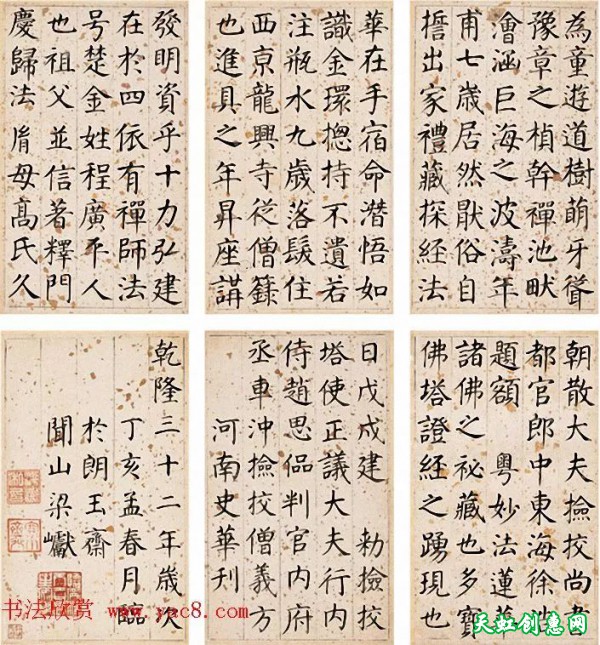 為童遊道樹萌牙聳
豫章之楨幹禪池畎
澮涵巨海之波濤年
甫七歲居然猒俗自
誓出家禮藏探經法
華在手宿命潛悟如
識金環揔持不遺若
注瓶水九歲落髮住
西京龍興寺從僧籙
也進具之年昇座講
發明資乎十力弘建
在於四依有禪師法
号楚金姓程廣平人
也祖父並信著釋門
慶歸法胤母髙氏久
朝散大夫撿挍尚書
都官郎中東海徐浩
題額 粵妙法蓮華
諸佛之祕藏也多寶
佛塔證經之踴現也
日戊戌建 勑撿挍
塔使正議大夫行内
侍趙思偘判官内府
丞車沖撿挍僧義方
河南史華刊
乾隆三十二年歲次
丁亥孟春月臨
於朗玉齋
聞山梁巘
书法欣赏 www.yac8.com
天虹创惠网